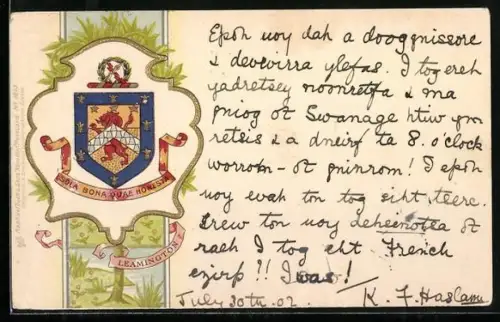 Epoh uoy dah a dooggnissorc
& devevirra ylefas. I tog ereh
yadretsey noonretfa & ma
gniog ot Swanage htiw ym
retsis & a dneirf ta 8. o'clock
worrom-ot gninrom! I epoh
uoy evah ton tog siht teere.
Erew ton uoy deheenotsa ot
raeh I tog eht French
ezirp?! I was!
July 30th. 02. K. F. Haslam
SOLA BONA QUAE HONESTA
LEAMINGTON